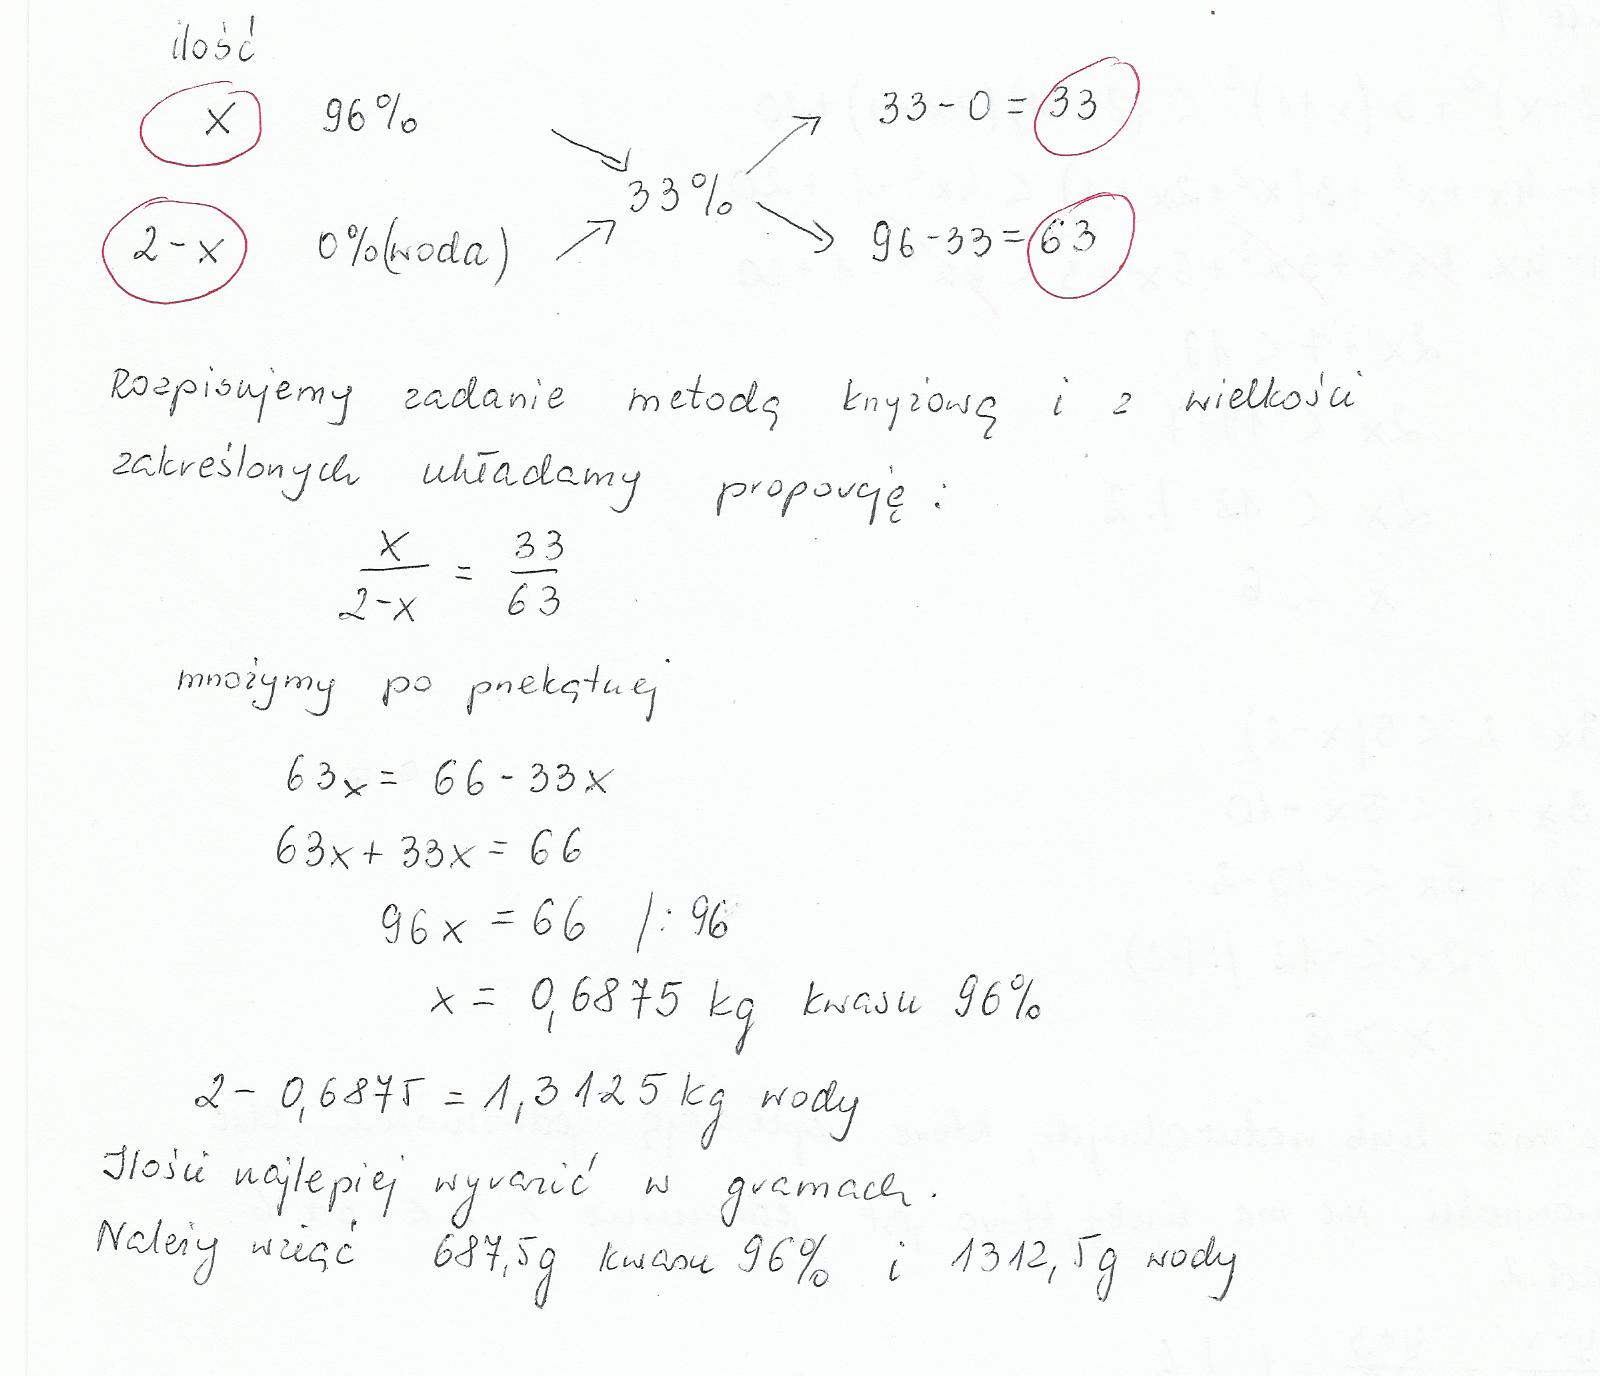 ilość
x 96% 33-0 = 33
33%
2-x 0% (woda) 96-33 = 63
Rozpisujemy zadanie metodą krzyżową i z wielkości
zakreślonych układamy proporcję:
x/2-x = 33/63
mnożymy po przekątnej
63x = 66-33x
63x+33x = 66
96x = 66 /:96
x = 0,6875 kg kwasu 96%
2- 0,6875 = 1,3125 kg wody
Ilości najlepiej wyrazić w gramach.
Należy wziąć 687,5g kwasu 96% i 1312,5g wody